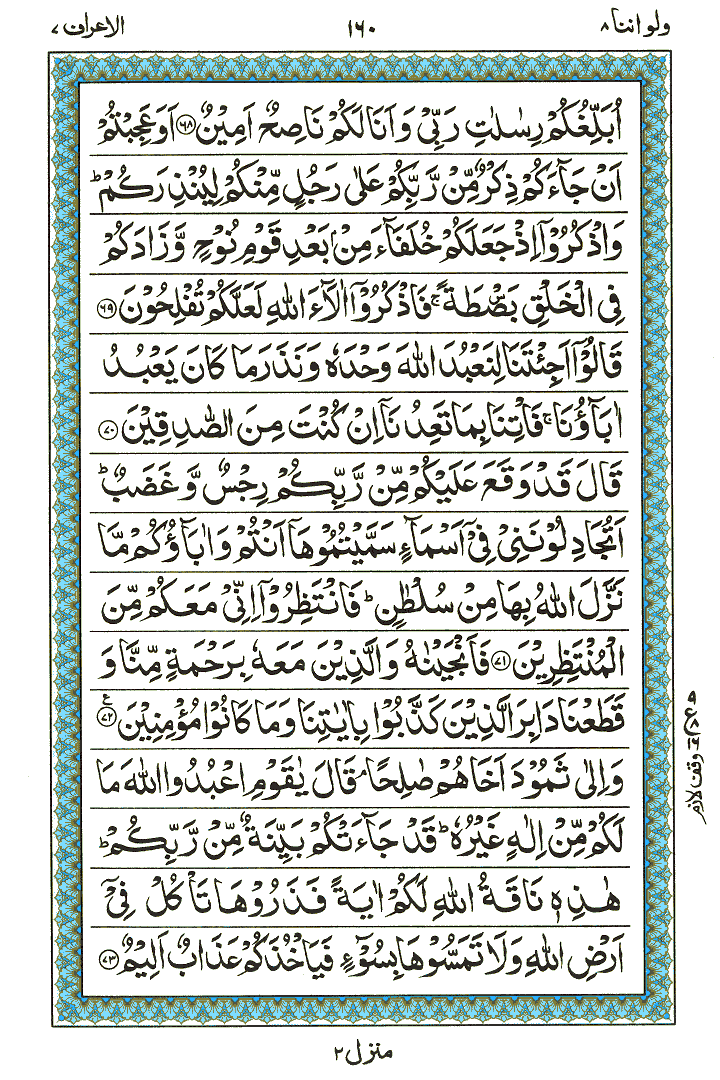 ولو اننا ۸ ۱۶۰ الاعراف ۷
اُبَلِّغُكُمْ رِسٰلٰتِ رَبِّیْ وَ اَنَا لَكُمْ نَاصِحٌ اَمِیْنٌ ﴿۶۸﴾ اَوَ عَجِبْتُمْ
اَنْ جَآءَكُمْ ذِكْرٌ مِّنْ رَّبِّكُمْ عَلٰی رَجُلٍ مِّنْكُمْ لِیُنْذِرَكُمْ ؕ
وَ اذْكُرُوْۤا اِذْ جَعَلَكُمْ خُلَفَآءَ مِنْۢ بَعْدِ قَوْمِ نُوْحٍ وَّ زَادَكُمْ
فِی الْخَلْقِ بَصْۜطَةً ۚ فَاذْكُرُوْۤا اٰلَآءَ اللّٰهِ لَعَلَّكُمْ تُفْلِحُوْنَ ﴿۶۹﴾
قَالُوْۤا اَجِئْتَنَا لِنَعْبُدَ اللّٰهَ وَحْدَهٗ وَ نَذَرَ مَا كَانَ یَعْبُدُ
اٰبَآؤُنَا ۚ فَاْتِنَا بِمَا تَعِدُنَاۤ اِنْ كُنْتَ مِنَ الصّٰدِقِیْنَ ﴿۷۰﴾
قَالَ قَدْ وَقَعَ عَلَیْكُمْ مِّنْ رَّبِّكُمْ رِجْسٌ وَّ غَضَبٌ ؕ
اَتُجَادِلُوْنَنِیْ فِیْۤ اَسْمَآءٍ سَمَّیْتُمُوْهَاۤ اَنْتُمْ وَ اٰبَآؤُكُمْ مَّا
نَزَّلَ اللّٰهُ بِهَا مِنْ سُلْطٰنٍ ؕ فَانْتَظِرُوْۤا اِنِّیْ مَعَكُمْ مِّنَ
الْمُنْتَظِرِیْنَ ﴿۷۱﴾ فَاَنْجَیْنٰهُ وَ الَّذِیْنَ مَعَهٗ بِرَحْمَةٍ مِّنَّا وَ
قَطَعْنَا دَابِرَ الَّذِیْنَ كَذَّبُوْا بِاٰیٰتِنَا وَ مَا كَانُوْا مُؤْمِنِیْنَ ﴿۷۲﴾ ع
وَ اِلٰی ثَمُوْدَ اَخَاهُمْ صٰلِحًا ۘ قَالَ یٰقَوْمِ اعْبُدُوا اللّٰهَ مَا
لَكُمْ مِّنْ اِلٰهٍ غَیْرُهٗ ؕ قَدْ جَآءَتْكُمْ بَیِّنَةٌ مِّنْ رَّبِّكُمْ ؕ
هٰذِهٖ نَاقَةُ اللّٰهِ لَكُمْ اٰیَةً فَذَرُوْهَا تَاْكُلْ فِیْۤ
اَرْضِ اللّٰهِ وَ لَا تَمَسُّوْهَا بِسُوْٓءٍ فَیَاْخُذَكُمْ عَذَابٌ اَلِیْمٌ ﴿۷۳﴾
وقف لازم
منزل ۲